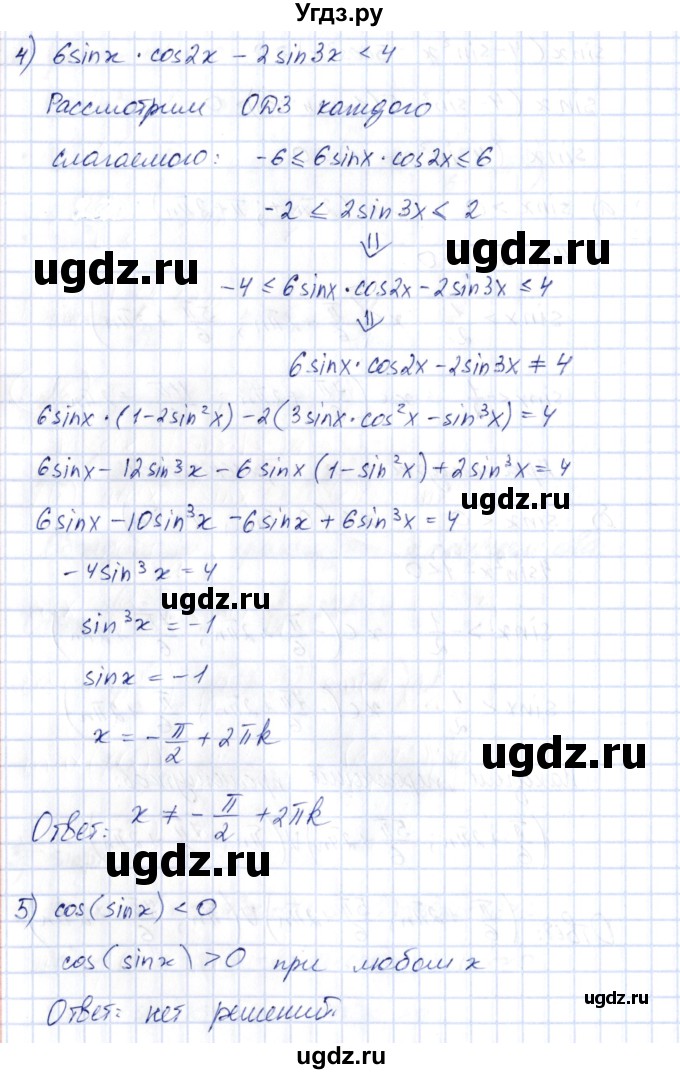 Угдз.ру
4) 6sinx · cos2x - 2sin3x < 4
Рассмотрим ОДЗ каждого
слагаемого: -6 ≤ 6sinx · cos2x ≤ 6
-2 ≤ 2sin3x < 2
⇓
ugdz.ru
ugdz.ru
-4 ≤ 6sinx · cos2x - 2sin3x ≤ 4
⇓
6sinx · cos2x - 2sin3x ≠ 4
6sinx · (1 - 2sin²x) - 2(3sinx · cos²x - sin³x) = 4
6sinx - 12sin³x - 6sinx(1 - sin²x) + 2sin³x = 4
ugdz.ru
6sinx - 10sin³x - 6sinx + 6sin³x = 4
-4sin³x = 4
ugdz.ru
sin³x = -1
sinx = -1
x = -π/2 + 2πk
ugdz.ru
Ответ: x ≠ -π/2 + 2πk
ugdz.ru
5) cos(sinx) < 0
cos(sinx) > 0 при любом x
Ответ: нет решений.
ugdz.ru
ugdz.ru